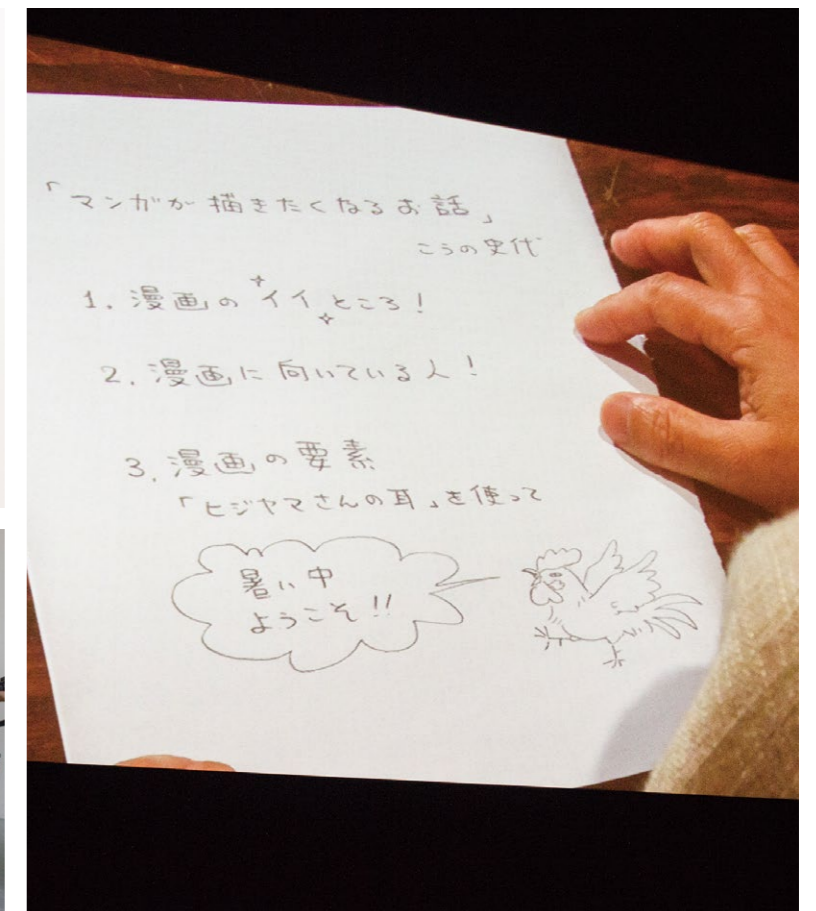 「マンガが描きたくなるお話」
こうの史代
1. 漫画のイイところ!
2. 漫画に向いている人!
3. 漫画の要素
「ヒジヤマさんの耳」を使って
暑い中
ようこそ!!